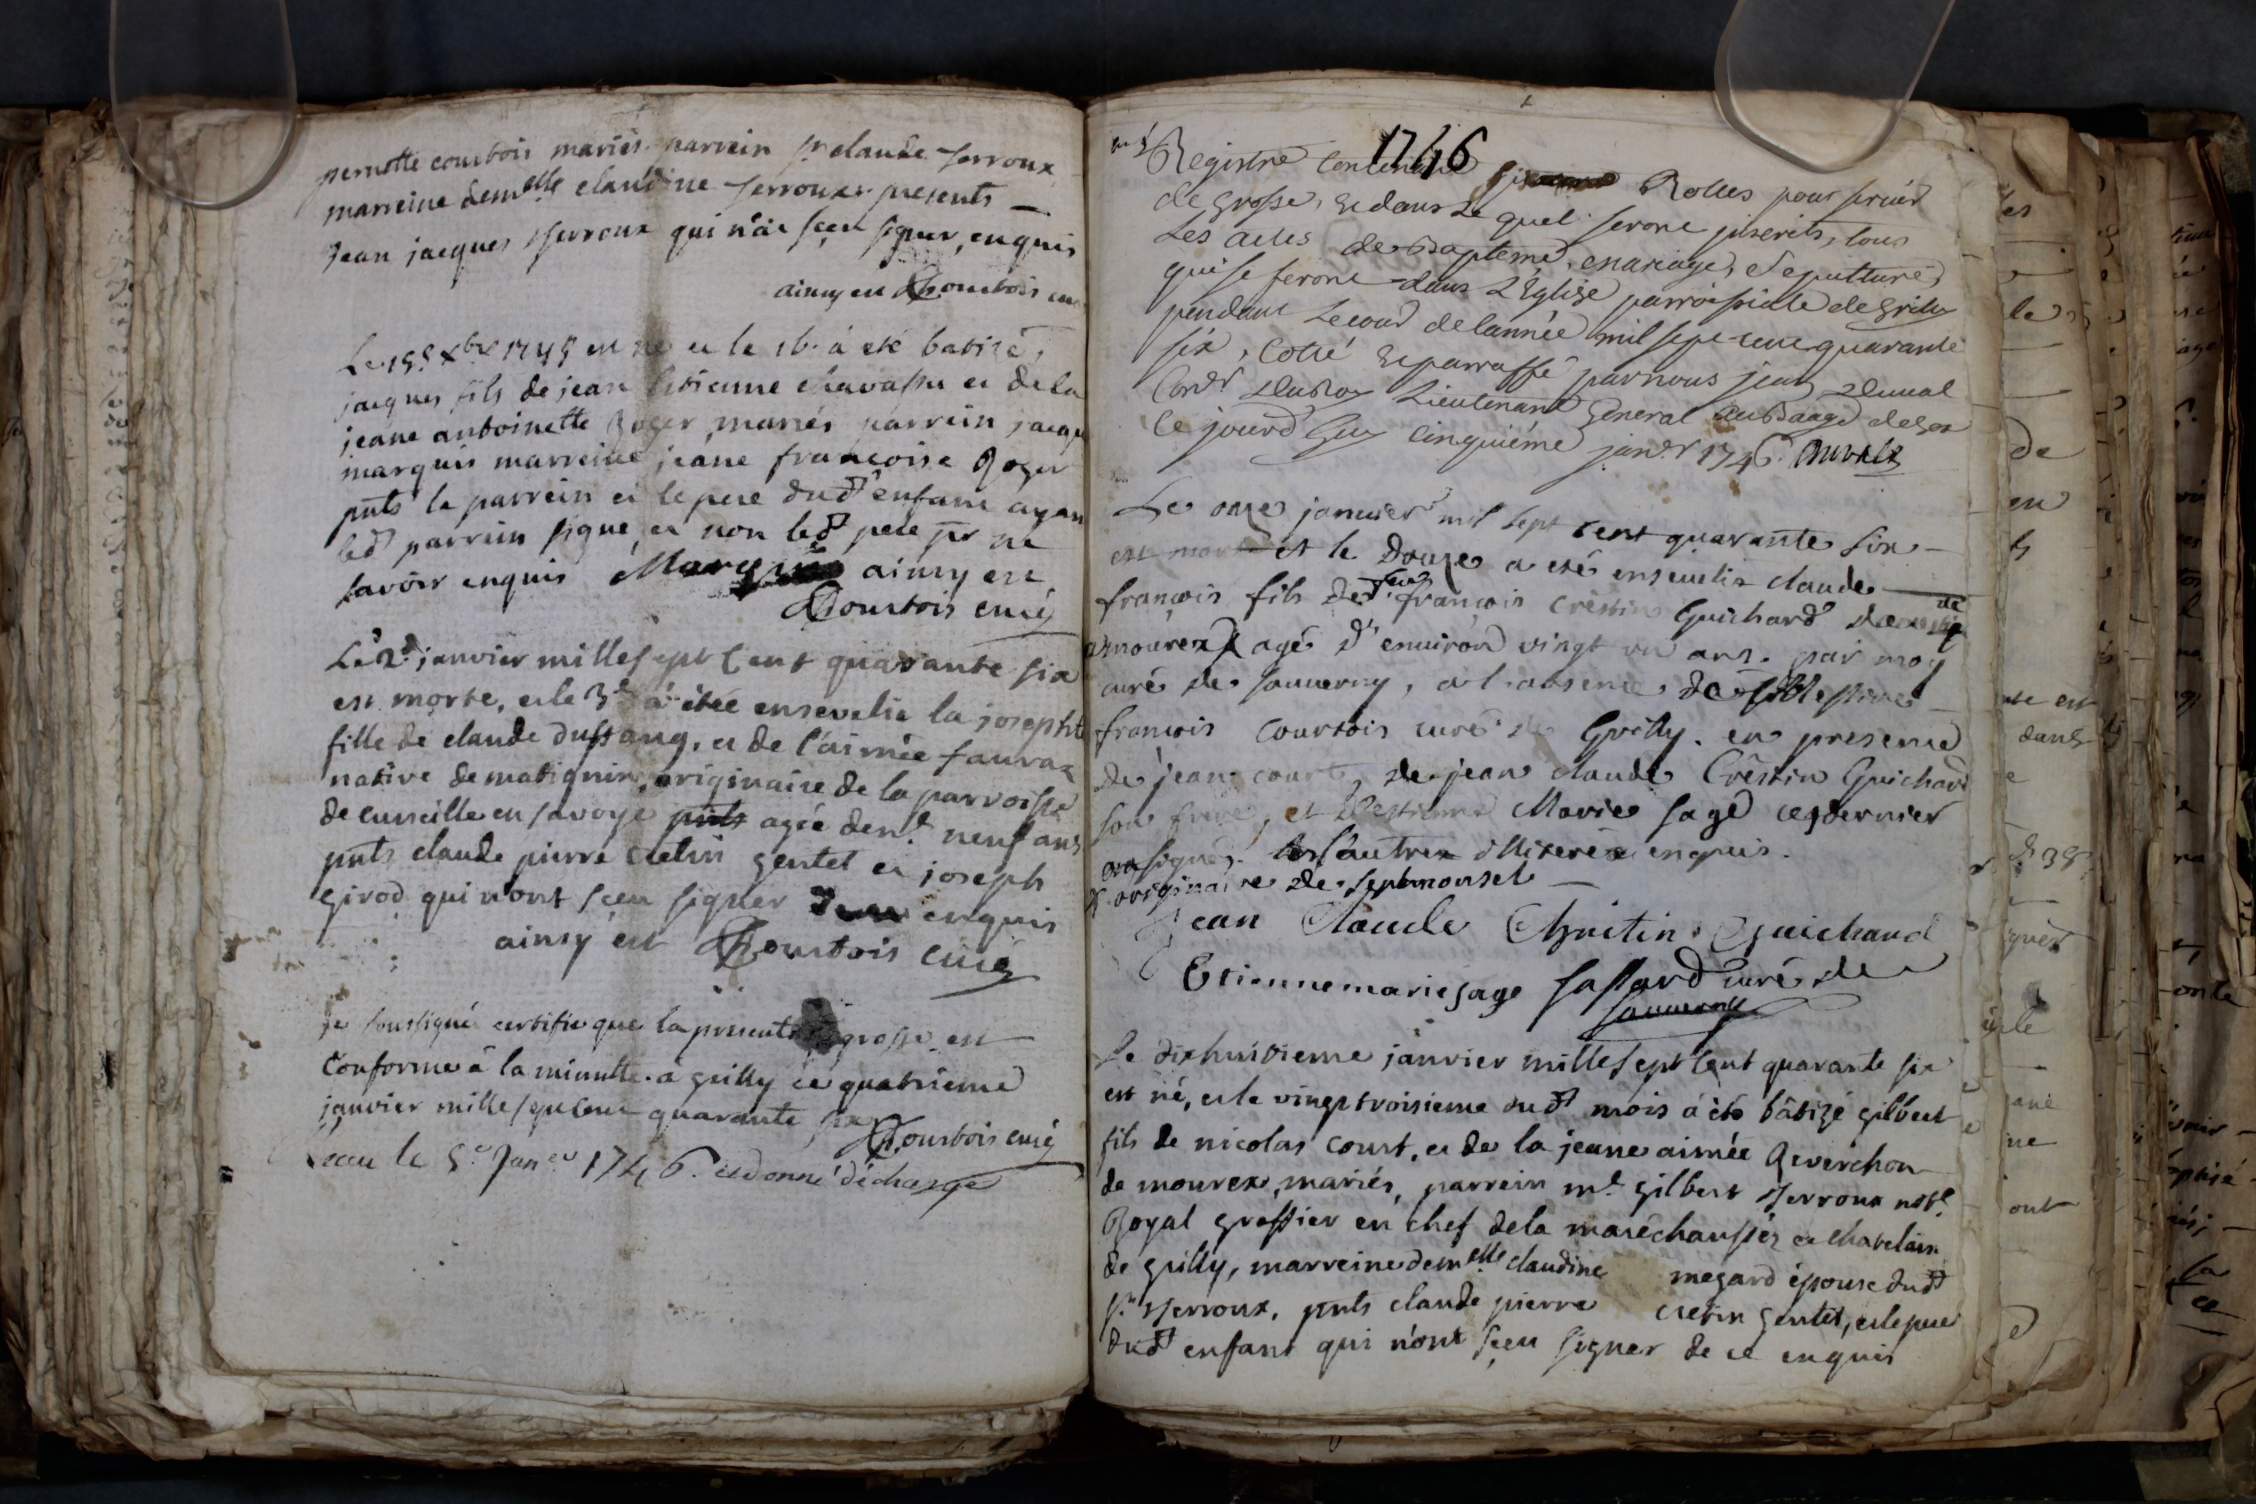 pernotte courtois mariés parrein sr claude ferroux
marreine demelle claudine ferroux presents
jean jacques ferroux qui n'a sçeu signer, enquis
ainsy est Courtois curé
Le 15e xbre 1745 est né et le 16 à eté batizé
jacques fils de jean Etienne chavassu et de la
jeane antoinette Roger mariés parrein jacqu
marquis marreine jeane françoise Roger
pnts le parrein et le pere dudt enfant ayan
ledt parrein signe, et non ledt pere pr ne
savoir enquis Marquis ainsy est
Courtois curé
Le 2e janvier mille sept Cent quarante six
est morte, et le 3e à étée ensevelie la josephte
fille de claude dussaug, et de l'aimée fauraz
native de matignin, originaire de la parroisse
de curseille en savoye agée denv. neuf ans
pnts claude pierre cretin gentet et joseph
girod qui n'ont sçeu signer enquis
ainsy est Courtois curé
je soussigné certifie que la presente grosse est
Conforme à la minutte. à grilly ce quatrieme
janvier mille sept Cent quarante six
Courtois curé
Receu le 5e Janer 1746. et donné décharge
1746
Registre Contenant Rolles pour servir
de grosse, Et dans Le quel seront inscrits, tous
Les actes de Baptême, mariage, Sepulture,
qui se feront dans L'Eglize parroissiale de Grilly
pendant Le cour de l'année mil sept cent quarante
six, Cotté Et parraffé par nous jean duval
Conr du Roy Lieutenant General au Baage de Gex
Ce jourd'huy cinquiéme janvr 1746. Duval
Le onze janvier mil sept cent quarante six
est mort et le douze a eté enseveli claude
françois fils de feu françois Crêstin Guichard de
mourex X agé d'environ vingt un ans. par moy
curé de sauverny, a l'absence de
francois Courtois curé de Grilly. en presence
de jean court, de jean claude Crêstin Guichard
son frere, et d'Estienne Marie sage ce dernier
ont signé. les autres illiteré enquis.
X originaire de septmonsel
Jean Claude Chritin Guichard
Etienne marie sage sassard curé de
sauverny
Le dixhuitieme janvier mille sept Cent quarante six
est né, et le vingt troisieme dudt mois à été bâtizé gilbert
fils de nicolas Court, et de la jeane aimée Reverchon
de mourex, mariés, parrein mr gilbert ferroux notre
Royal greffier en chef de la maréchaussée et chatelain
de grilly, marreine demelle claudine megard épouse dudt
sr ferroux, pnts claude pierre cretin gentet, et le pere
dudt enfant qui n'ont sçeu signer de ce enquis